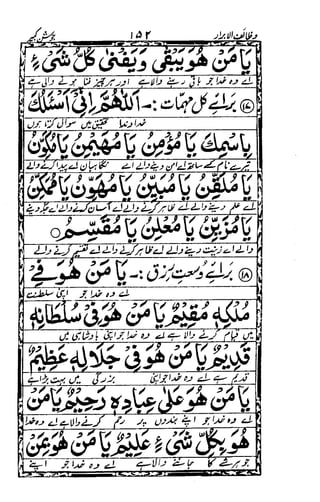 وظائف الابرار ۱۵۲ جوشن کبیر
يَا مَنْ هُوَ يَبْقٰى وَ يَفْنٰى كُلُّ شَىْءٍ
اے وہ خدا جو باقی رہنے والا ہے اور ہر چیز فنا ہونے والی ہے
⑰ برائے کل مہمات :- اَللّٰهُمَّ اِنِّىْ اَسْئَلُكَ
خداوندا تحقیق میں سوال کرتا ہوں
بِاسْمِكَ يَا مُؤْمِنُ يَا مُهَيْمِنُ يَا مُكَوِّنُ
تیرے نام کے ساتھ اے امن دینے والے اے نگاہبان اے پیدا کرنے والے
يَا مُلَقِّنُ يَا مُبَيِّنُ يَا مُهَوِّنُ يَا مُمَكِّنُ
اے علم دینے والے اے ظاہر کرنے والے اے آسان کرنے والے اے جگہ دینے
يَا مُزَيِّنُ يَا مُعْلِنُ يَا مُقَسِّمُ
والے اے زینت دینے والے اے ظاہر کرنے والے اے تقسیم کرنے والے
⑱ برائے وسعت رزق :- يَا مَنْ هُوَ فِىْ
اے وہ خدا جو اپنی سلطنت
مُلْكِهٖ مُقِيْمٌ يَا مَنْ هُوَ فِىْ سُلْطَانِهٖ
میں قیام کرنے والا ہے اے وہ خدا جو اپنی بادشاہی میں
قَدِيْمٌ يَا مَنْ هُوَ فِىْ جَلَالِهٖ عَظِيْمٌ
قدیم ہے اے وہ خدا جو اپنی بزرگی میں بہت بڑا ہے
يَا مَنْ هُوَ عَلٰى عِبَادِهٖ رَحِيْمٌ يَا مَنْ
اے وہ خدا جو اپنے بندوں پر رحم کرنے والا ہے اے وہ خدا
هُوَ بِكُلِّ شَىْءٍ عَلِيْمٌ يَا مَنْ هُوَ بِمَنْ
جو ہر شے کا جاننے والا ہے اے وہ خدا جو اپنے